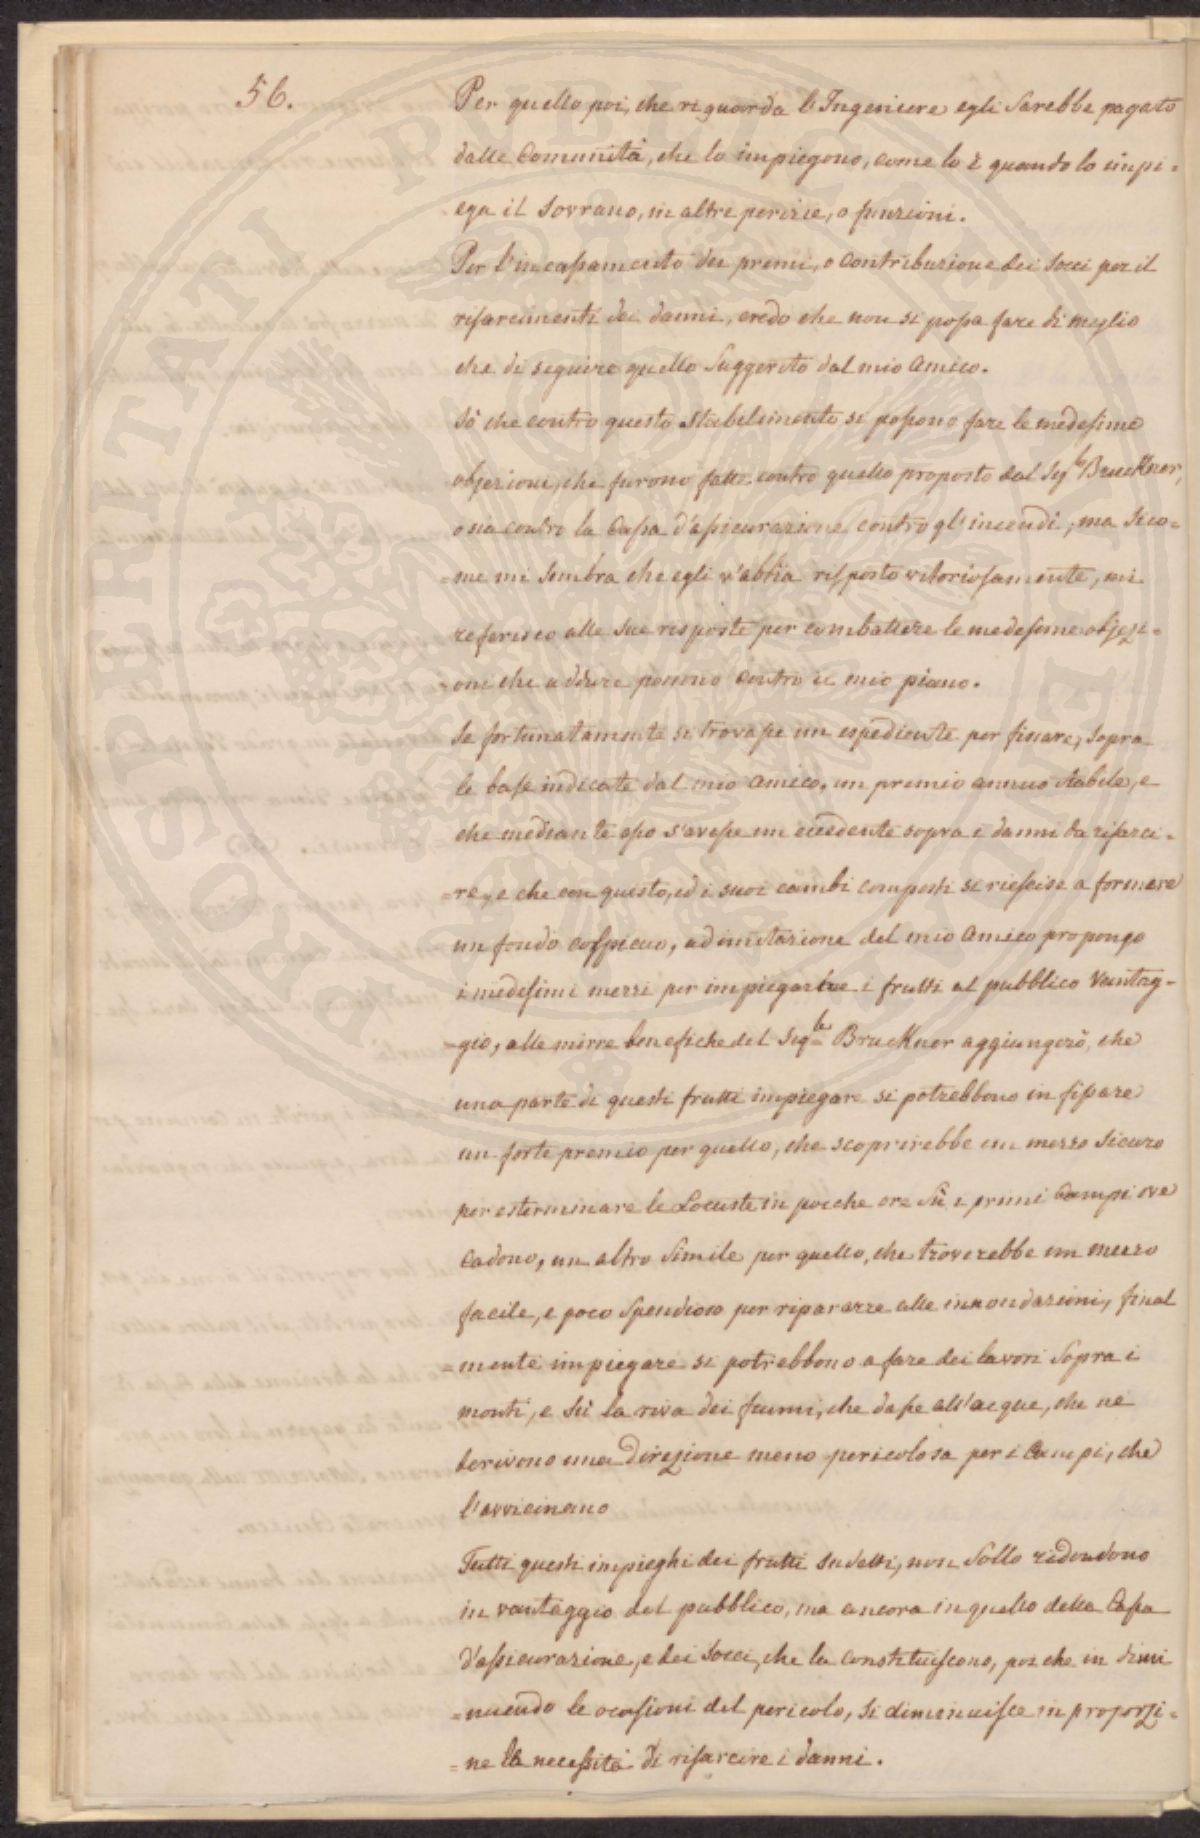 56.
Per quello poi, che riguarda l'Ingeniere egli sarebbe pagato
dalle Comunità, che lo impiegono, come lo è quando lo impi-
ega il Sovrano, in altre perizie, o funzioni.
Per l'incassamento dei premi, o Contribuzione dei Socci per il
risarcimenti dei danni, credo che non si possa fare di meglio
che di seguire quello suggerito dal mio Amico.
Sò che contro questo stabilimento si possono fare le medesime
objezioni, che furono fatte contro quello proposto dal Sigre Bruckner,
o sia contro la Cassa d'assicurazione contro gl'incendi, ma sico-
=me mi sembra che egli v'abbia risposto vitoriosamente, mi
referisco alle sue risposte per combattere le medesime objezi-
=oni che addurre possono contro il mio piano.
Se fortunatamente si trovasse un espediente per fissare, sopra
le base indicate dal mio Amico, un premio annuo stabile, e
che mediante esso s'avesse un eccedente sopra i danni da risarci-
=re, e che con questo, ed i suoi cambi composti si riescisse a formare
un fondo cospicuo, ad imitazione del mio Amico propongo
i medesimi mezzi per impiegarne i frutti al pubblico vantag-
=gio, alle mirre benefiche del Sigre Bruckner aggiungerò, che
una parte di questi frutti impiegare si potrebbono in fissare
un forte premio per quello, che scoprirebbe un mezzo sicuro
per esterminare le Locuste in poche ore sù i primi Campi ove
cadono, un altro simile per quello, che troverebbe un mezzo
facile, e poco spendioso per riparare alle innondazioni, final
=mente impiegare si potrebbono a fare dei lavori sopra i
monti, e sù la riva dei fiumi, che dasse all'acque, che ne
derivono una Direzione meno pericolosa per i Campi, che
l'avvicinano
Tutti questi impieghi dei frutti sudetti, non sollo ridondono
in vantaggio del pubblico, ma ancora in quello della Cassa
d'assicurazione, e dei Socci, che la constituiscono, poi che in dimi
=nuendo le occasioni del pericolo, si diminuisce in proporzi-
=ne la necessità di risarcire i danni.
PROSPERITATI PUBLICAE